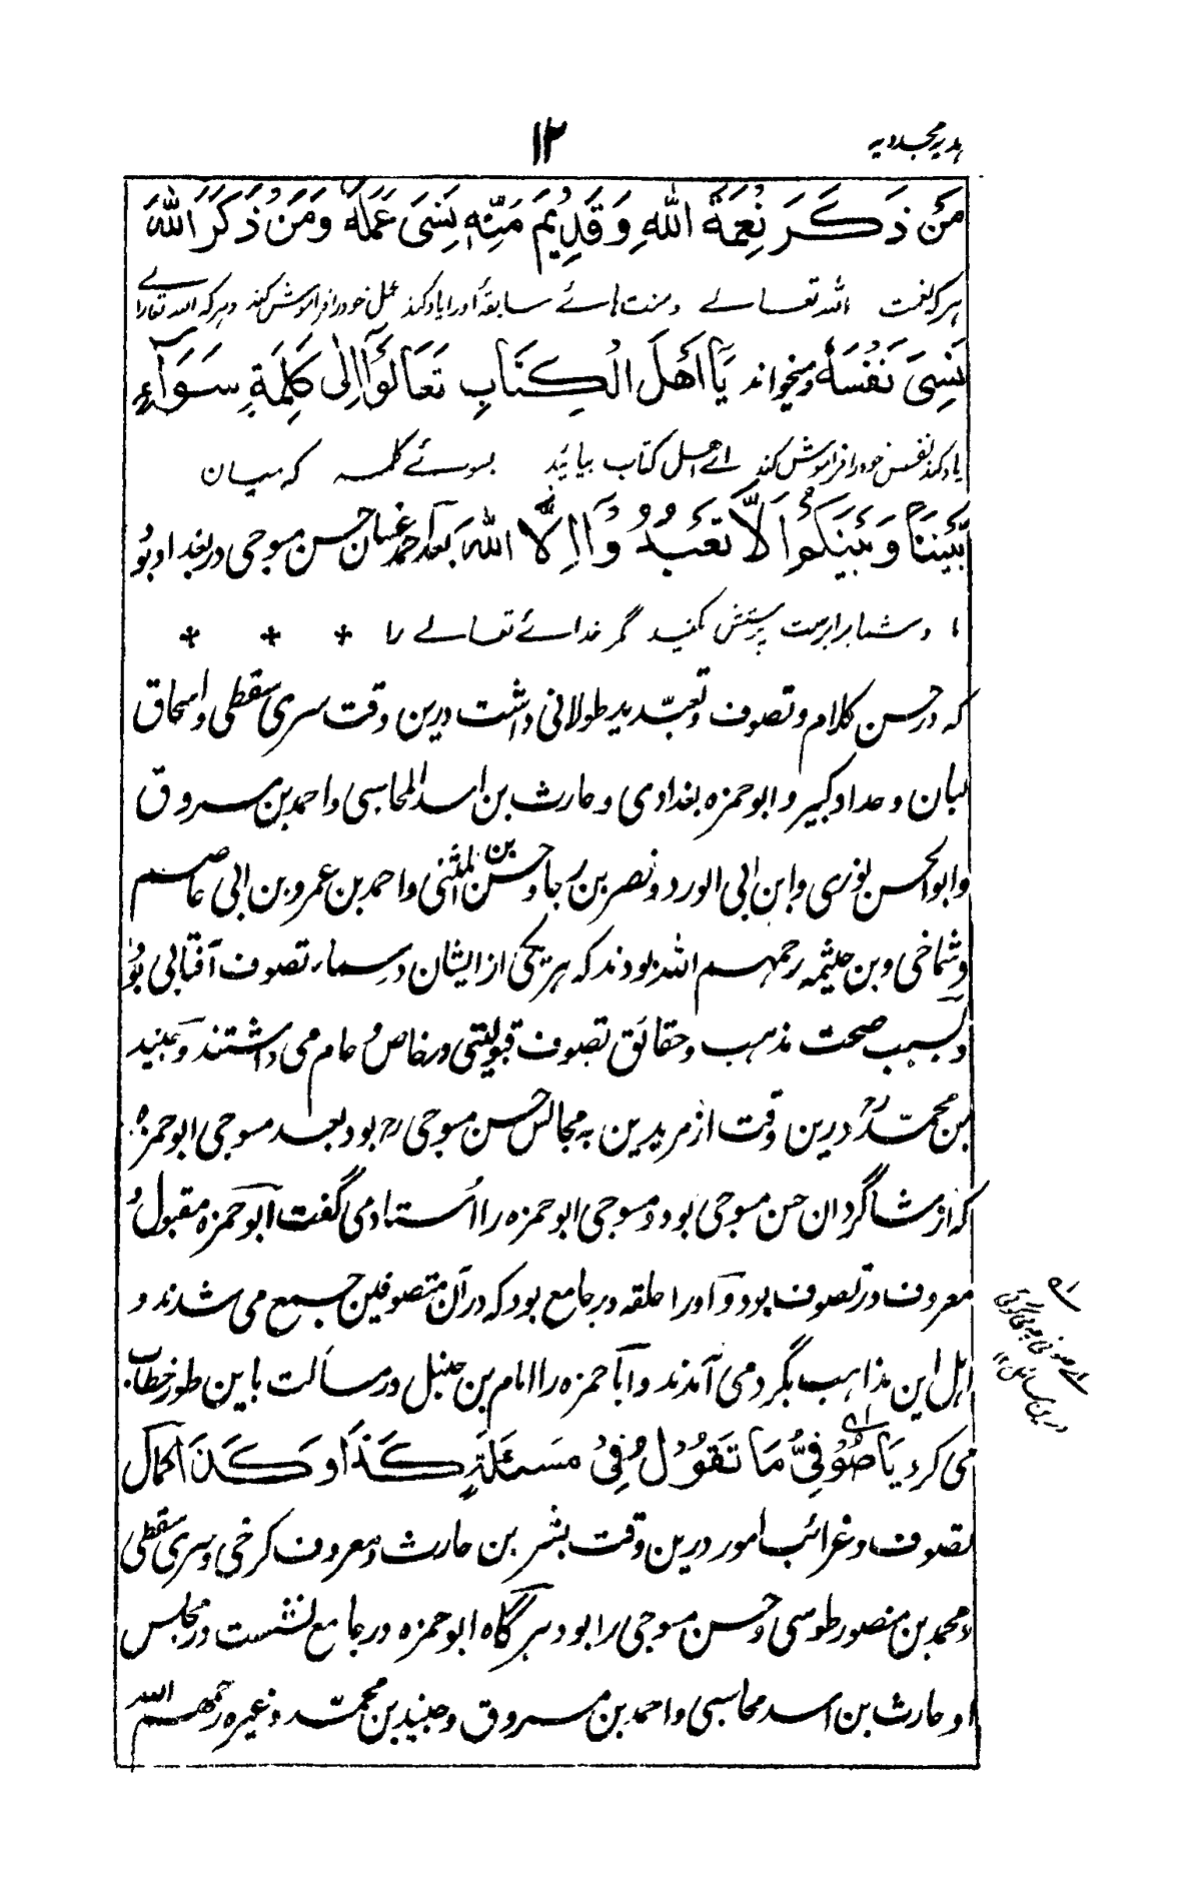 ہدیہ مجددیہ
۱۲
مَنْ ذَكَرَ نِعْمَةَ اللهِ وَقَدِيْمَ مَنِّهٖ يَنْسٰى عَمَلَهٗ وَمَنْ ذَكَرَ اللهَ
ہر کہ نعمت اللہ تعالے و منت ہائے سابقۂ اورا یاد کند عمل خود را فراموش کند و ہر کہ اللہ تعالے را
يَنْسٰى نَفْسَهٗ و میخواند يَا اَهْلَ الْكِتَابِ تَعَالَوْا اِلٰى كَلِمَةٍ سَوَآءٍ
یاد کند نفس خود را فراموش کند اے اہل کتاب بیائید بسوئے کلمہ کہ میان
بَيْنَنَا وَبَيْنَكُمْ اَلَّا نَعْبُدُوْا اِلَّا اللهَ بعد احمد غسان حسن مسوحی در بغداد بود
ما و شما برابر ست پرستش نکنید مگر خدائے تعالے را
که در حسن کلام و تصوف و تعبد ید طولانی داشت درین وقت سری سقطی و اسحاق
لبان و حداد کبیر و ابو حمزه بغدادی و حارث بن اسد المحاسبی و احمد بن مسروق
و ابو الحسن نوری و ابن ابی الورد و نصر بن رجا و حسن بن المثنی و احمد بن عمرو بن ابی عاصم
و شماخی و بن خیثمه رحمہم اللہ بودند که هر یکی از ایشان در سماء تصوف آفتابی بود
و بسبب صحت مذهب و حقائق تصوف قبولیتی در خاص و عام می داشتند و جنید
بن محمدؒ درین وقت از مریدین به مجالس حسن مسوحیؒ بود بعد مسوحی ابو حمزه
که از شاگردان حسن مسوحی بود و مسوحی ابو حمزه را استاد می گفت ابو حمزه مقبول و
معروف در تصوف بود و او را حلقه در جامع بود که در آن متصوفین جمع می شدند و
اہل این مذاہب بگرد می آمدند و ابا حمزه را امام بن حنبل در مسالت باین طور خطاب
می کرد يَا صُوْفِيُّ مَا تَقُوْلُ فِيْ مَسْئَلَةٍ كَذَا وَكَذَا کمال
تصوف و غرائب امور درین وقت بشر بن حارث و معروف کرخی و سری سقطی
و محمد بن منصور طوسی و حسن مسوحی را بود هر گاه ابو حمزه در جامع نشست در مجلس
او حارث بن اسد محاسبی و احمد بن مسروق و جنید بن محمد و غیره رحمہم اللہ
اے صوفی چه می گوئی
درین مسائل ۱۲